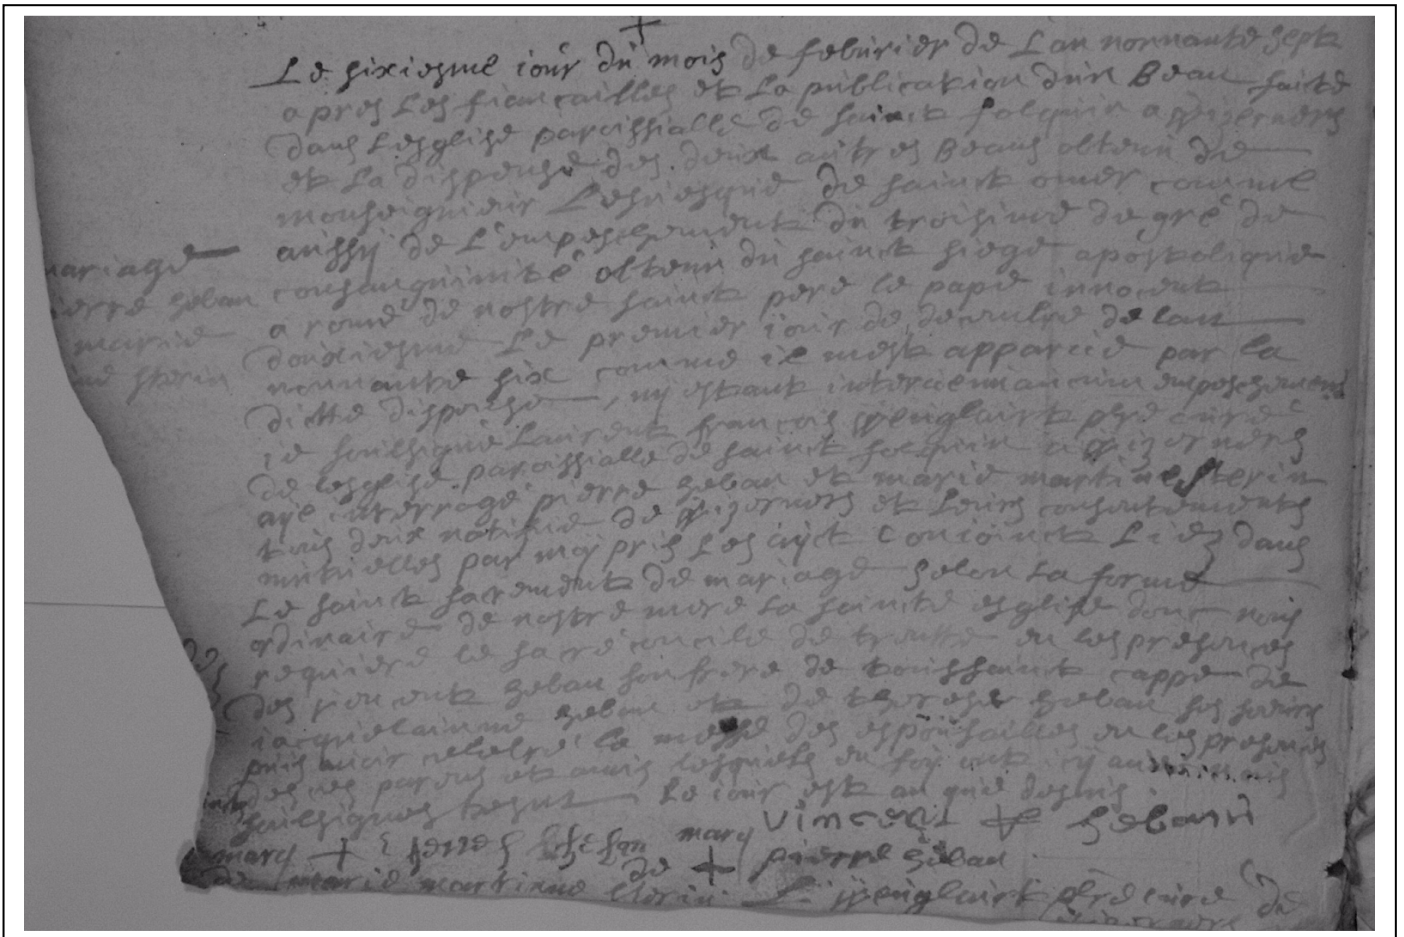 Le sixiesme iour du mois de febvrier de Lan nonnante sept
apres Les fiancailles et La publication dun Beau faite
dans Lesglise paroissialle de sainct folquin a wizernes
et La dispense des deux autres Beaus obtenu de
monseigneur Levesque de sainct omer comme
aussy de Lempeschement du troisime degré de
mariage
consanguinité obtenu du sainct siege apostolique
pierre geban
a rome de nostre sainct pere le pape innocent
marie
douxiesme Le premier iour de decembre de lan
sterin
nonnante six comme il mest apparu par la
ditte dispense, ny estant intervenu aucun empeschement
ie soubsigné Laurent francois pbre curé
de lesglise paroissialle de sainct folquin a wizernes
aye interrogé pierre geban et marie martine sterin
tous deux natif de wizernes et Leurs consentements
mutuelles par moy pris Les ayt conioinct Liez dans
Le sainct sacrement de mariage selon La forme
ordinaire de nostre mere La sainte esglise donc nous
requiere le sacré concile de trente en les presences
des vincent geban son frere de toussainct cappe de
iacquelainne geban et de therese geban ses soeurs
puis avoir celebré la messe des espousailles en les presences
des parens et amis lesquels en foy ont icy
soubsignes Le iour est an que dessus
marcq Vincent geban
marcq de pierre geban
de marie martinne sterin L. pbre curé de